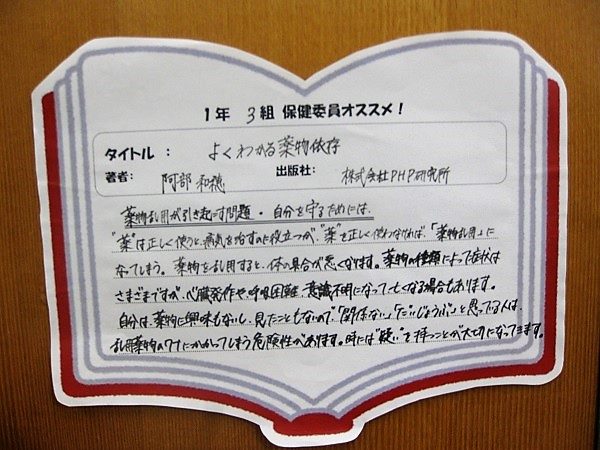 1年 3組 保健委員オススメ!
タイトル: よくわかる薬物依存
著者: 阿部 和穂 出版社: 株式会社PHP研究所
薬物乱用が引き起こす問題・自分を守るためには。
"薬"は正しく使うと、病気を治すのに役立つが、"薬"を正しく使わなければ「薬物乱用」に
なってしまう。薬物を乱用すると、体の具合が悪くなります。薬物の種類によって症状は
さまざまですが、心臓発作や呼吸困難、意識不明になって亡くなる場合もあります。
自分は、薬物に興味もないし、見たこともないので、「関係ない」「だいじょうぶ」と思ってる人は、
乱用薬物のワナにかかってしまう危険性があります。時には"疑い"を持つことが大切になってきます。